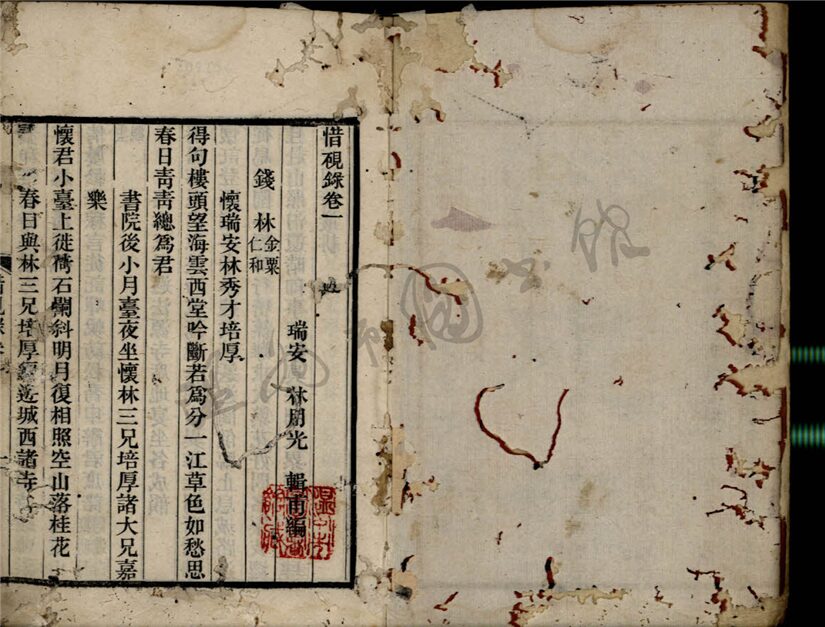 惜硯錄卷一
瑞安 林 光 輯甫編
錢 林金粟仁和
懷瑞安林秀才培厚
得句樓頭望海雲西堂吟斷若爲分一江草色如愁思
春日靑靑總爲君
書院後小月臺夜坐懷林三兄培厚諸大兄嘉
樂
懷君小臺上徙倚石闌斜明月復相照空山落桂花
春日與林三兄培厚 城西諸寺